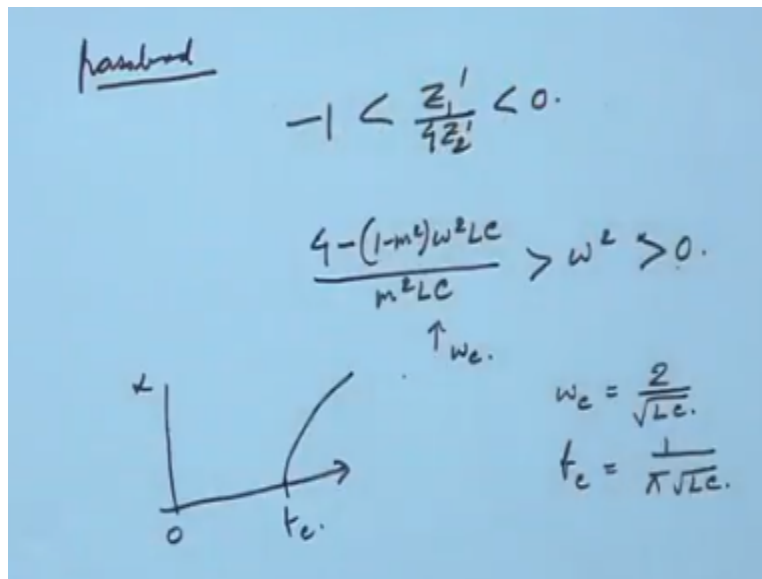 passband
-1 < Z₁' / 4Z₂' < 0.
4-(1-m²)ω²LC / m²LC > ω² > 0.
↑ ωc.
α
0
fc.
ωc = 2 / √LC.
fc = 1 / π√LC.